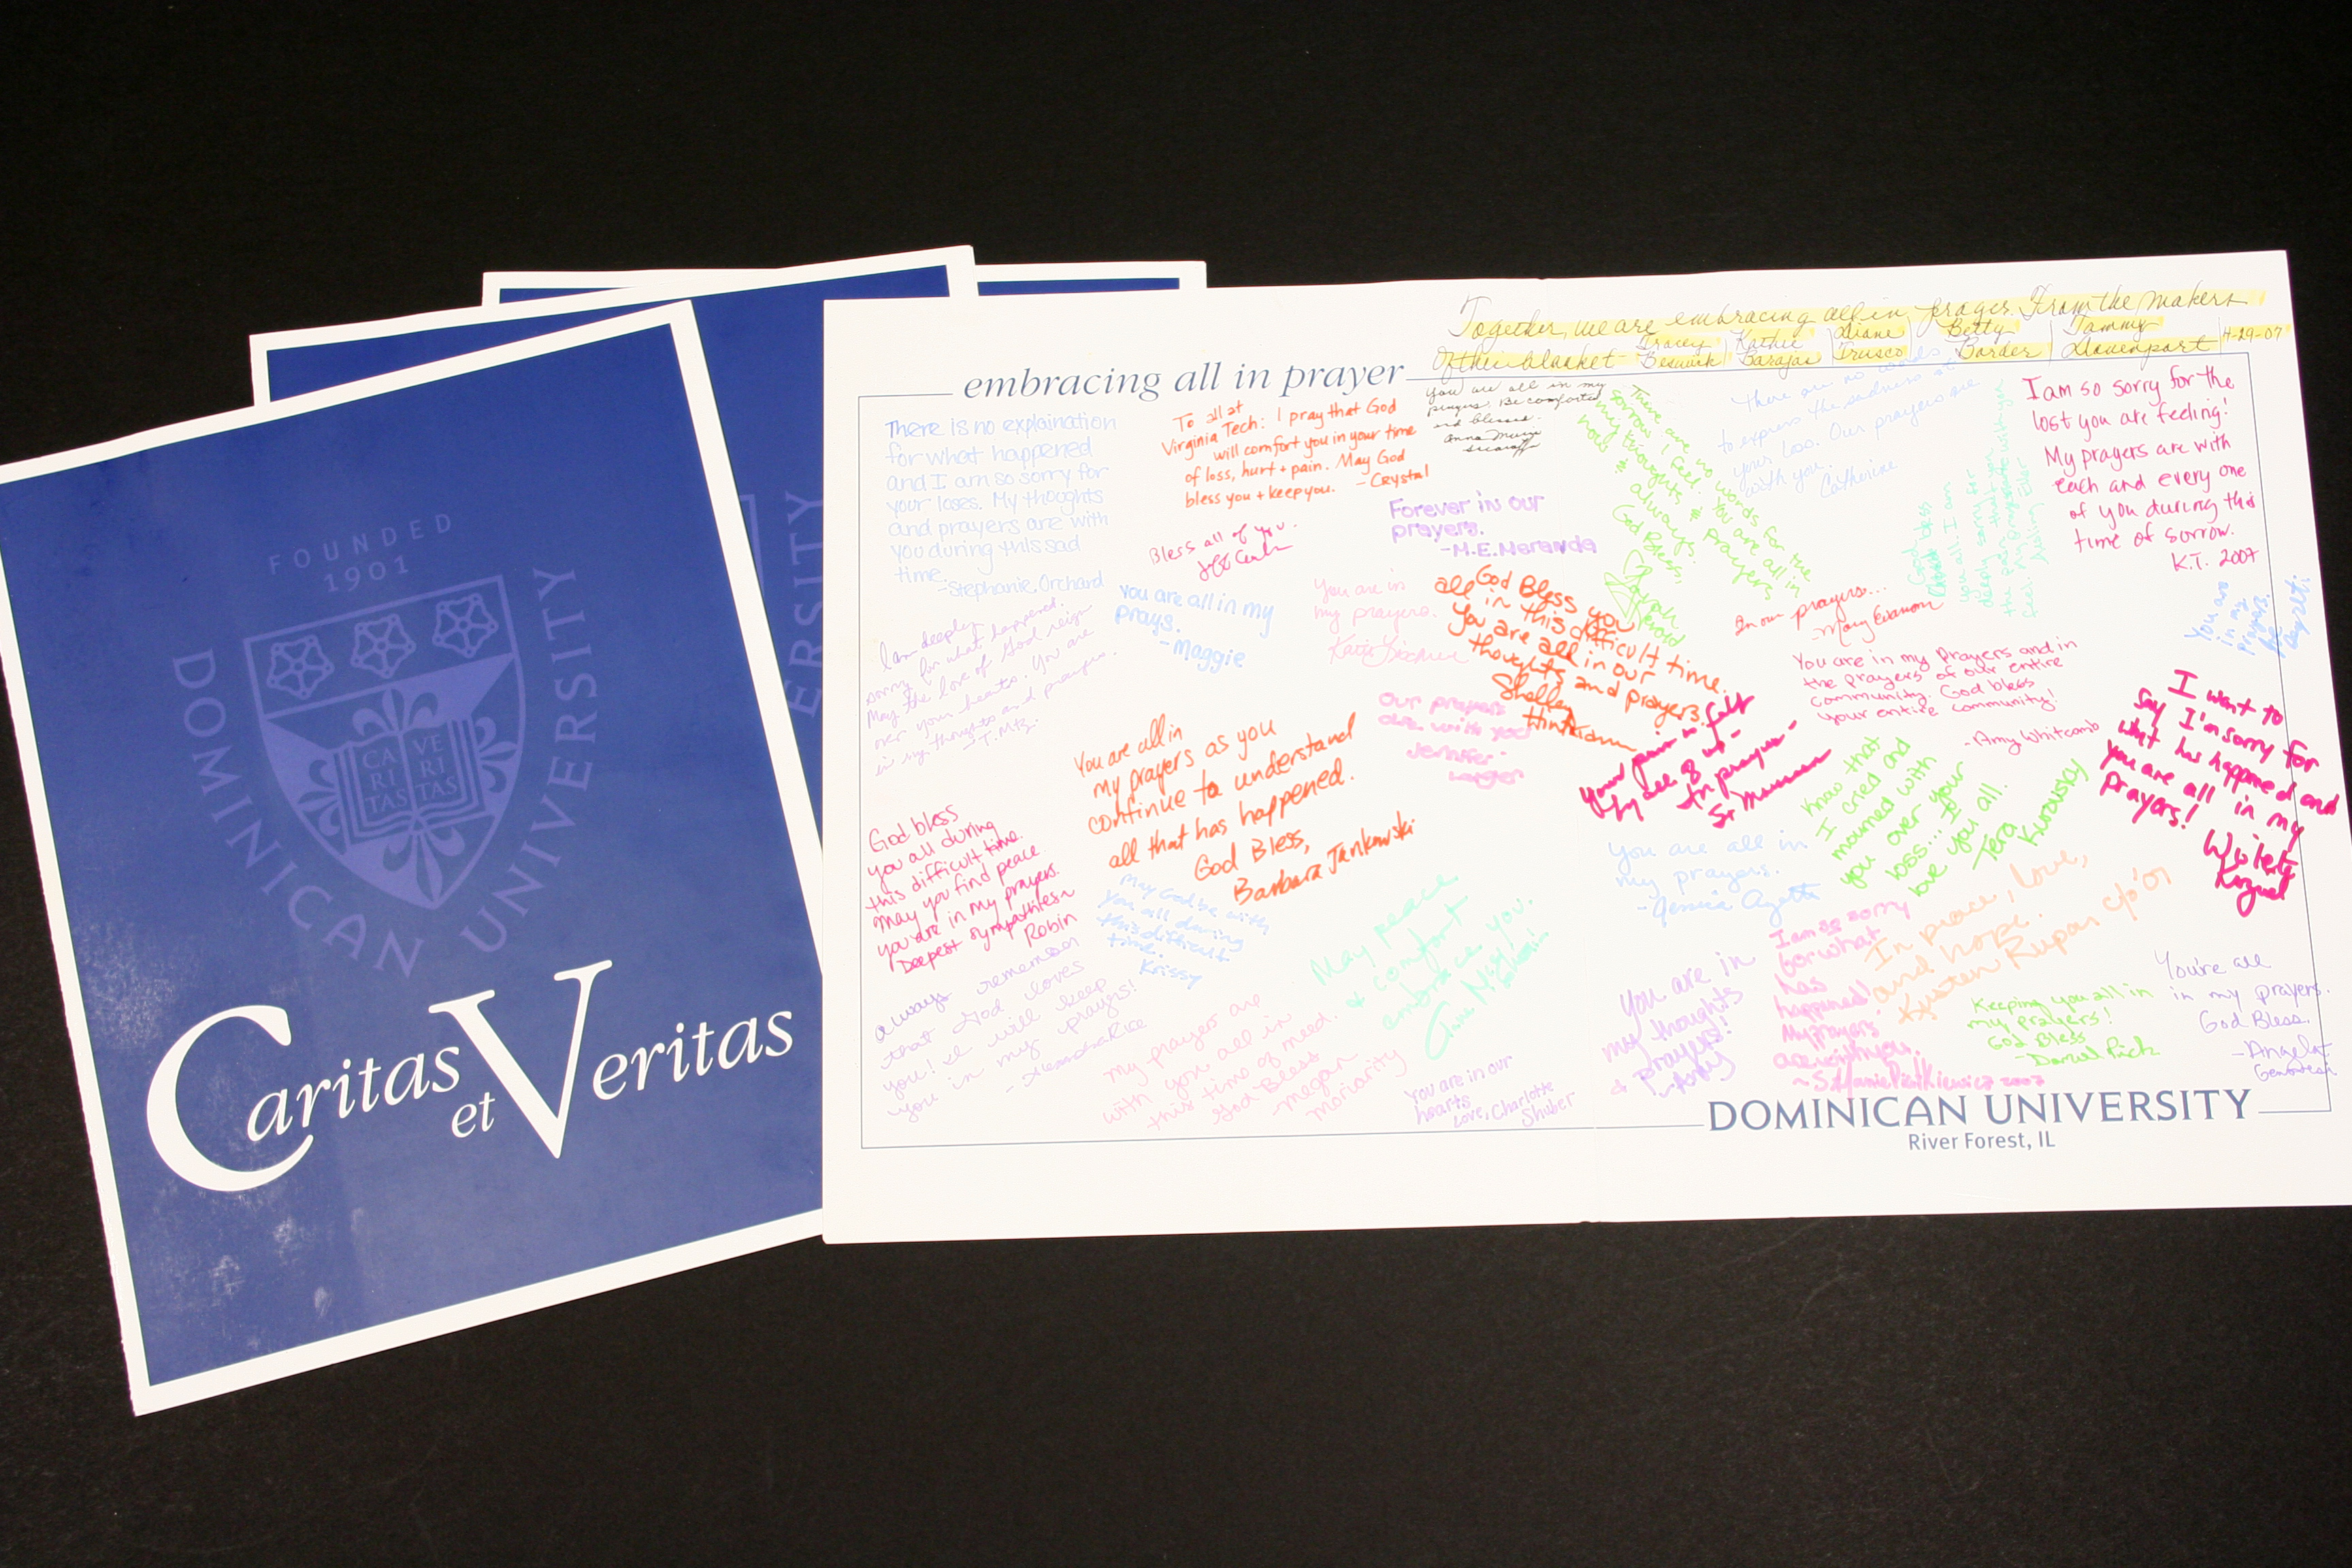 FOUNDED
1901
DOMINICAN UNIVERSITY
CA VE
RI RI
TAS TAS
Caritas
et Veritas
ERSITY
Together, we are embracing all in prayer. From the makers
Of their blanket - Tracey Beswick | Kathie Barajas | Diane Trusco | Betty Border | Tammy Davenport | 4-29-07
embracing all in prayer
There is no explaination
for what happened
and I am so sorry for
your loses. My thoughts
and prayers are with
you during this sad
time.
-Stephanie Orchard
To all at
Virginia Tech: I pray that God
will comfort you in your time
of loss, hurt + pain. May God
bless you + keep you. - Crystal
you are all in my
prayers. Be comforted
and blessed.
Bless all of you.
Forever in our
prayers.
-M.E. Neranda
There are no words for the
sorrow I feel. You are all in
my thoughts & prayers
now & always.
God Bless.
Sarah
There are no words
to express the sadness at
your loss. Our prayers are
with you.
Catherine
God bless
you all. I am
deeply sorry for
the pain that you
feel. My prayers are with you
I am so sorry for the
lost you are feeling!
My prayers are with
each and every one
of you during this
time of sorrow.
K.T. 2007
I am deeply
sorry for what happened.
May the love of God reign
over your hearts. You are
in my thoughts and prayers.
you are all in my
prays.
- Maggie
You are in
my prayers.
Katie
God Bless you
all in this difficult time.
You are all in our
thoughts and prayers.
In our prayers...
-Mary
You are in my prayers and in
the prayers of our entire
community. God bless
your entire community!
-Amy Whitcomb
You are
in my
prayers.
I want to
say I'm sorry for
what has happened and
you are all in my
Prayers!
You are all in
my prayers as you
continue to understand
all that has happened.
God Bless,
Barbara Jankowski
Our prayers
are with you
Jennifer
Your pain is felt
by all of us -
In prayer -
Know that
I cried and
mourned with
you over your
loss... I
love you all.
Tera
God bless
you all during
this difficult time.
may you find peace.
you are in my prayers.
Deepest sympathies
Robin
May God be with
you all during
this difficult
time.
Krissy
You are all in
my prayers.
-Jessica
always remember
that God loves
you! I will keep
you in my prayers!
- Alexandra Rice
May peace
& comfort
embrace you.
my prayers are
with you all in
this time of need.
God Bless
-Megan
Moriarity
You are in our
hearts
Love, Charlotte
Shuber
You are in
my thoughts
& prayers!
-Amy
I am so sorry
for what
has
happened!
My prayers
are with you.
2007
In peace, love,
and hope.
Kristen Rupar c/o '07
Keeping you all in
my prayers!
God Bless
You're all
in my prayers.
God Bless.
-Angela
DOMINICAN UNIVERSITY
River Forest, IL